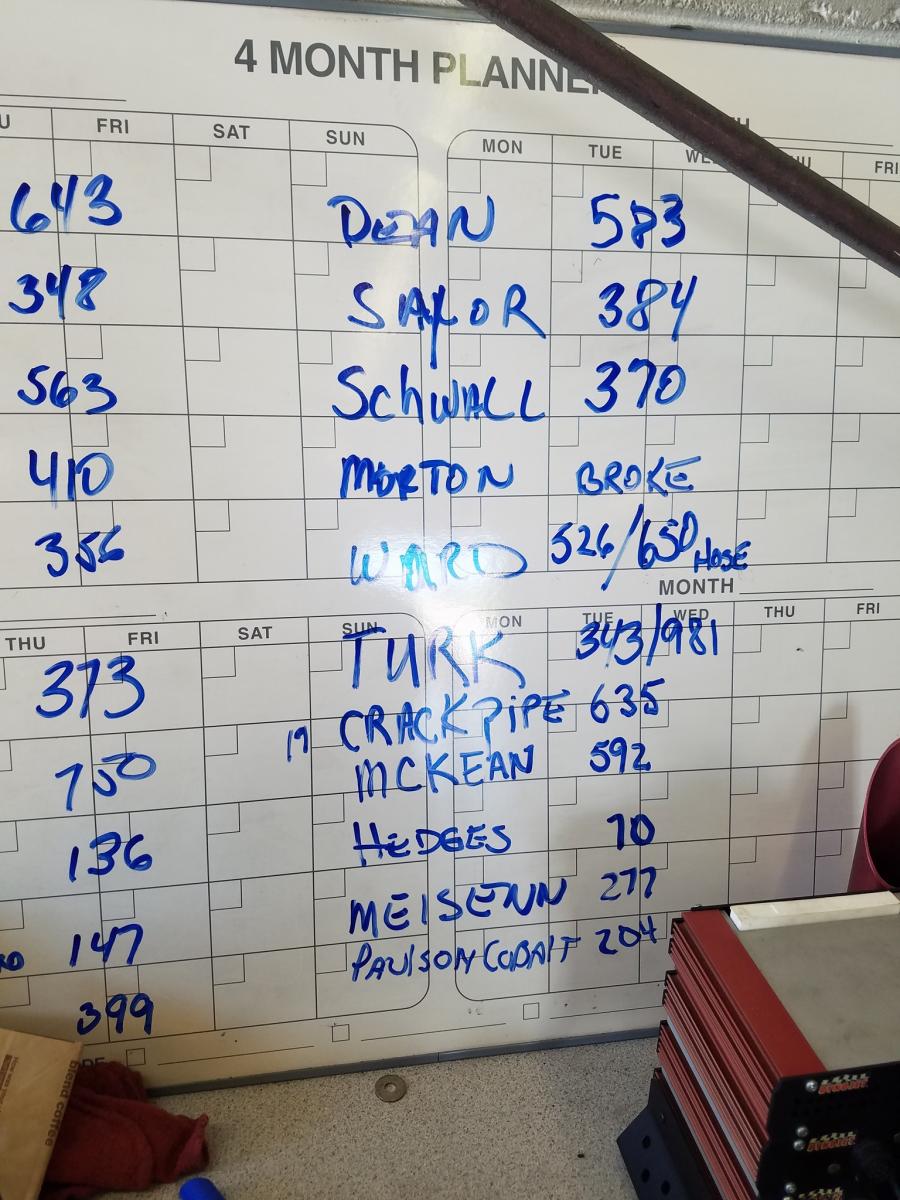 4 MONTH PLANNE
FRI SAT SUN MON TUE WE HU FRI
643 DEAN 583
348 SAYLOR 384
563 SCHWALL 370
410 MORTON BROKE
356 WARD 526/650 HOSE
MONTH
THU FRI SAT SUN MON TUE WED THU FRI
373 TURK 343/981
750 19 CRACKPIPE 635
MCKEAN 592
136 HEDGES 70
147 MEISENN 277
399 PAULSON COBALT 204
blend coffee
DYNOJET
DYNOJET